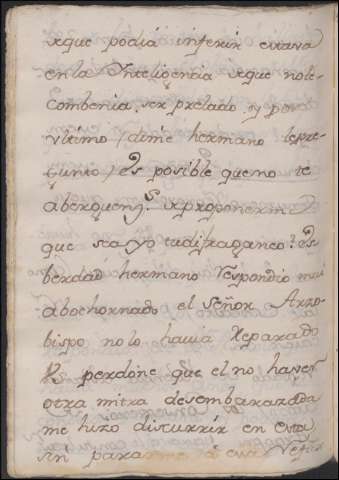 xque podiá inferir estava
en la Ynteligencia xque nole
combenia ser prelado y por
vltimo / dime hermano lepre
gunto / es posible queno te
aberguenz.s xproponerme
que sea yo tu difraganeo? es
berdad hermano respondio mui
abochornado el señor Arzo
bispo no lo havia Reparado
perdone que el no haver
otra mitra desembarazada
me hizo discurrir en esta
sin parar